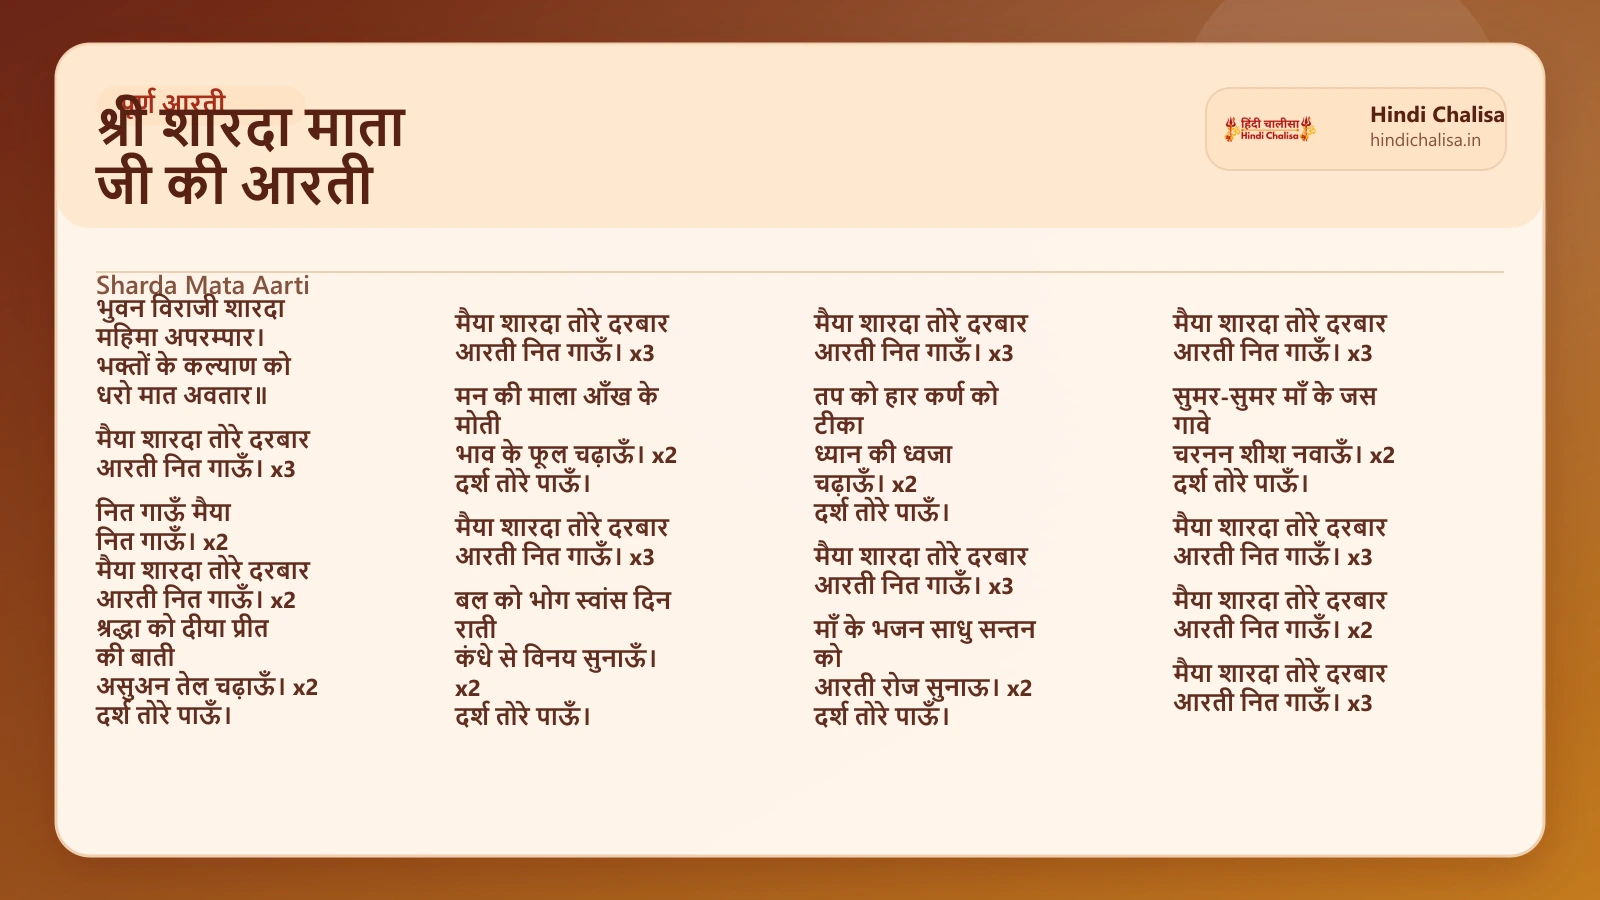 पूर्ण आरती
श्री शारदा माता
जी की आरती
हिंदी चालीसा
Hindi Chalisa
Hindi Chalisa
hindichalisa.in
Sharda Mata Aarti
भुवन विराजी शारदा
महिमा अपरम्पार।
भक्तों के कल्याण को
धरो मात अवतार॥
मैया शारदा तोरे दरबार
आरती नित गाऊँ। x3
नित गाऊँ मैया
नित गाऊँ। x2
मैया शारदा तोरे दरबार
आरती नित गाऊँ। x2
श्रद्धा को दीया प्रीत
की बाती
असुअन तेल चढ़ाऊँ। x2
दर्श तोरे पाऊँ।
मैया शारदा तोरे दरबार
आरती नित गाऊँ। x3
मन की माला आँख के
मोती
भाव के फूल चढ़ाऊँ। x2
दर्श तोरे पाऊँ।
मैया शारदा तोरे दरबार
आरती नित गाऊँ। x3
बल को भोग स्वांस दिन
राती
कंधे से विनय सुनाऊँ।
x2
दर्श तोरे पाऊँ।
मैया शारदा तोरे दरबार
आरती नित गाऊँ। x3
तप को हार कर्ण को
टीका
ध्यान की ध्वजा
चढ़ाऊँ। x2
दर्श तोरे पाऊँ।
मैया शारदा तोरे दरबार
आरती नित गाऊँ। x3
माँ के भजन साधु सन्तन
को
आरती रोज सुनाऊ। x2
दर्श तोरे पाऊँ।
मैया शारदा तोरे दरबार
आरती नित गाऊँ। x3
सुमर-सुमर माँ के जस
गावे
चरनन शीश नवाऊँ। x2
दर्श तोरे पाऊँ।
मैया शारदा तोरे दरबार
आरती नित गाऊँ। x3
मैया शारदा तोरे दरबार
आरती नित गाऊँ। x2
मैया शारदा तोरे दरबार
आरती नित गाऊँ। x3